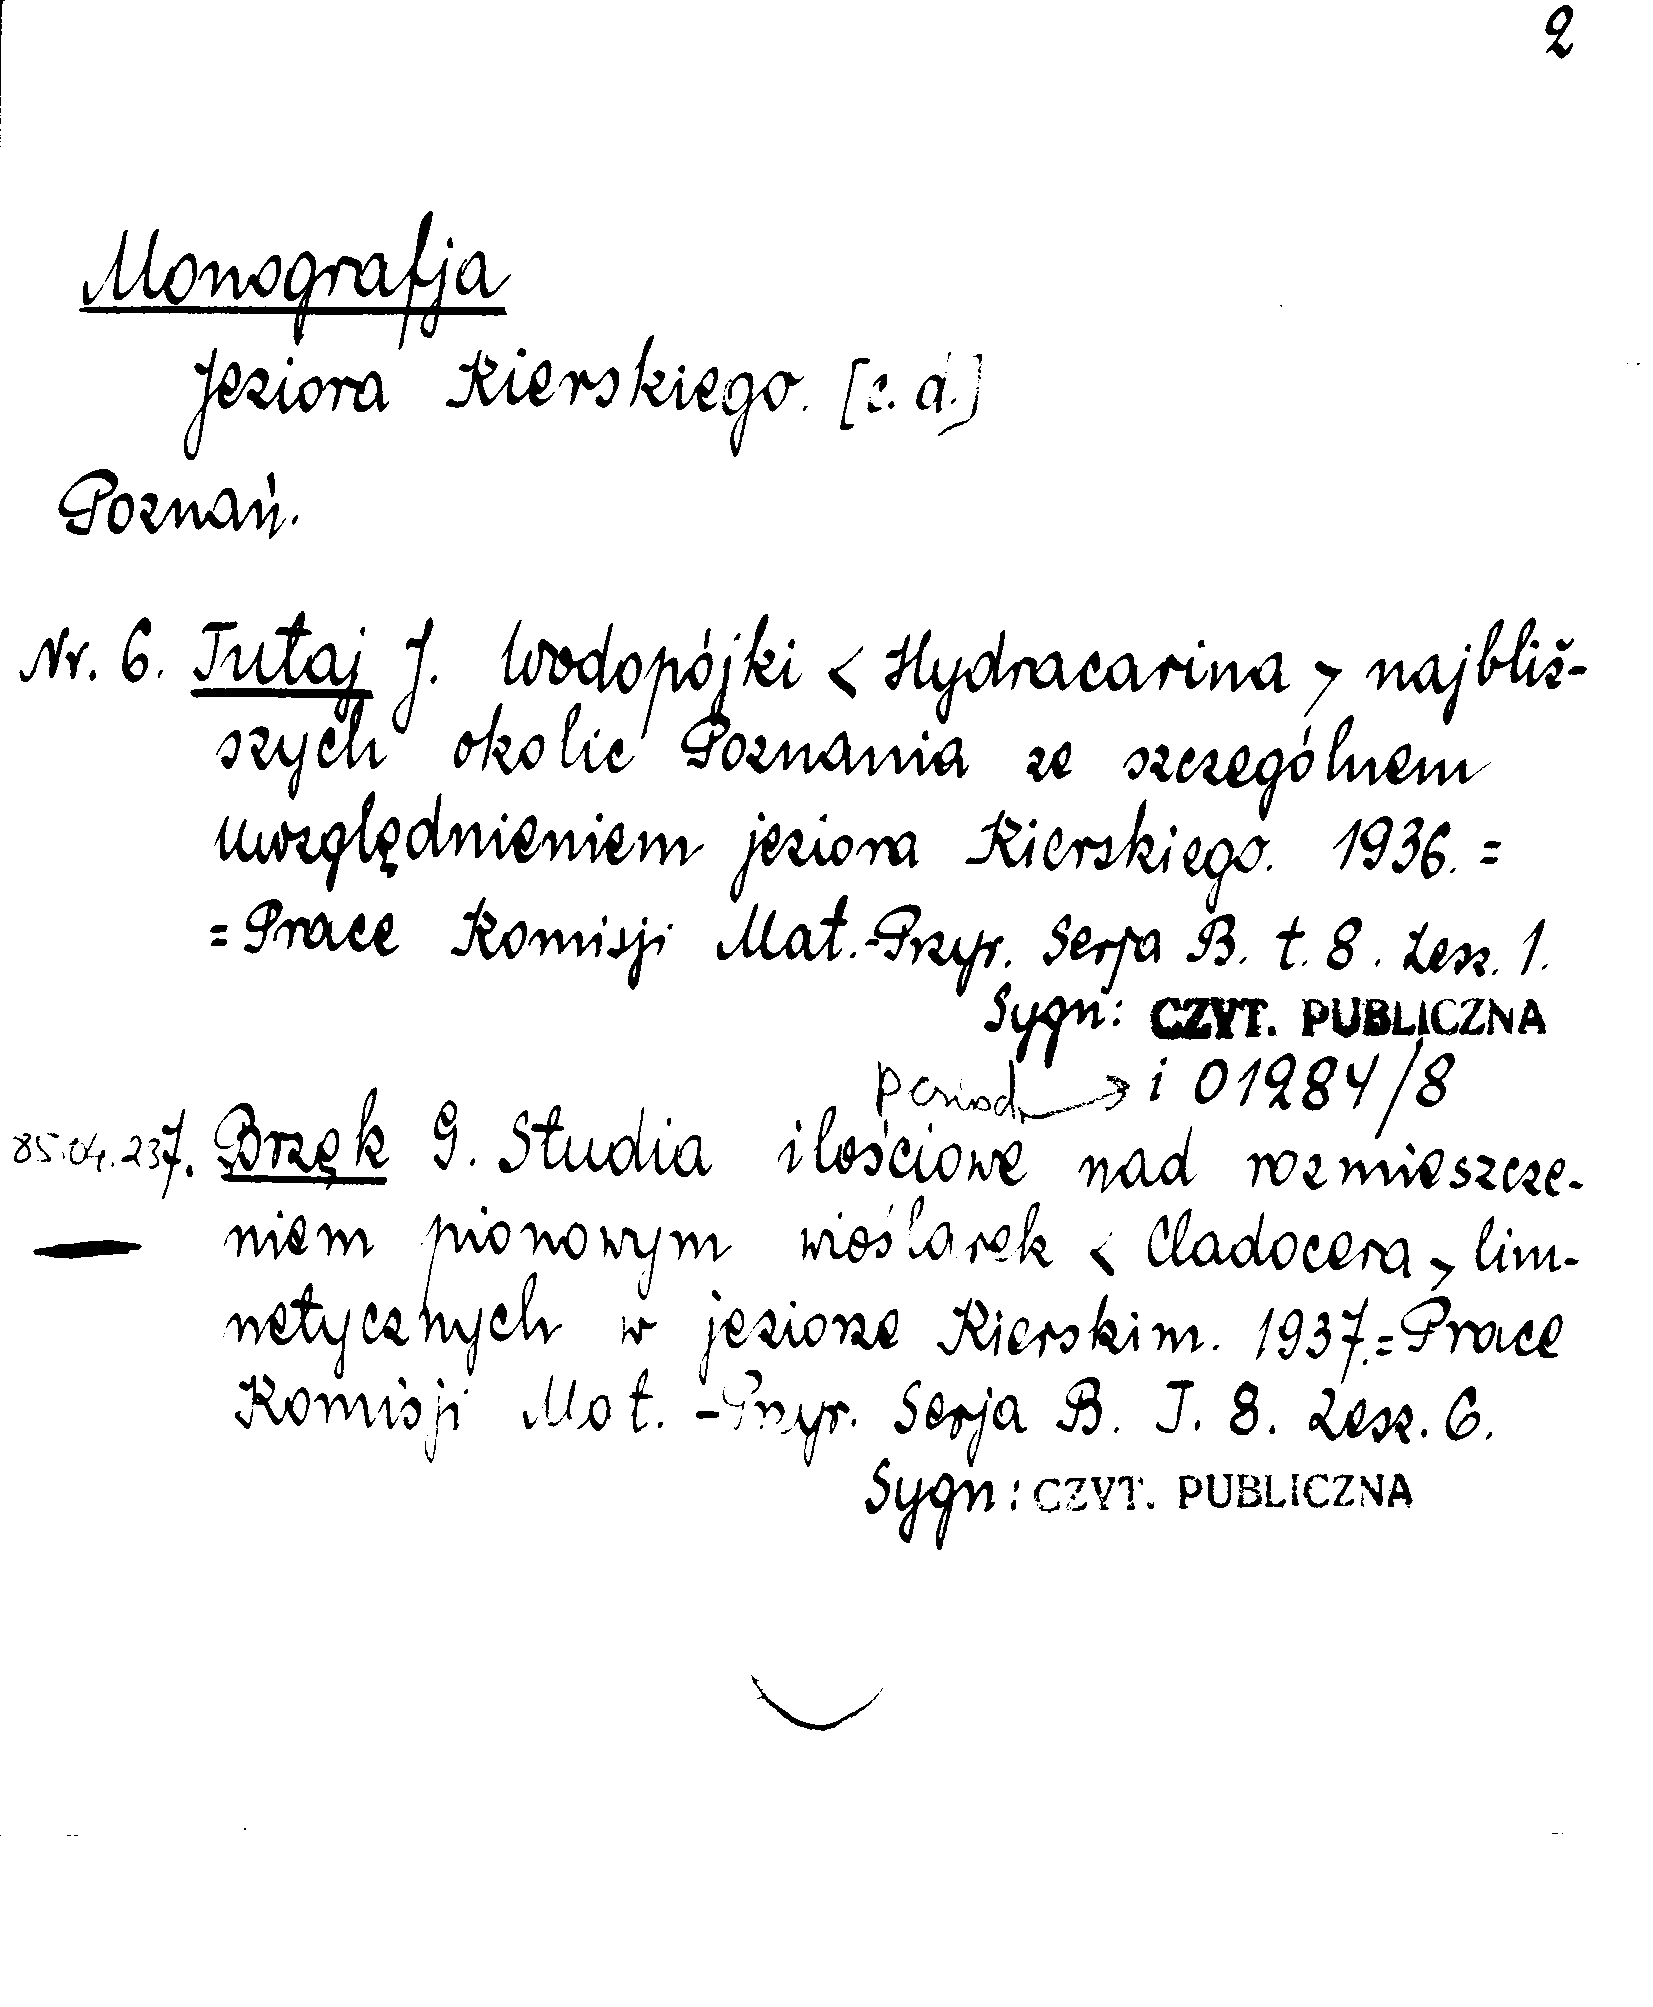 2
Monografja
Jeziora Kierskiego. [c. d.]
Poznań.
Nr. 6. Tutaj J. Wodopójki < Hydracarina > najbliż-
szych okolic Poznania ze szczególnem
uwzględnieniem jeziora Kierskiego. 1936. =
= Prace Komisji Mat.-Przyr. Serja B. t. 8. Zesz. 1.
Sygn: CZYT. PUBLICZNA
Period. → i 01284/8
85.04.23 7. Brzęk G. Studia ilościowe nad rozmieszcze-
niem pionowym wioślarek < Cladocera > lim-
netycznych w jeziorze Kierskim. 1937. = Prace
Komisji Mat. - Przyr. Serja B. T. 8. Zesz. 6.
Sygn: CZYT. PUBLICZNA